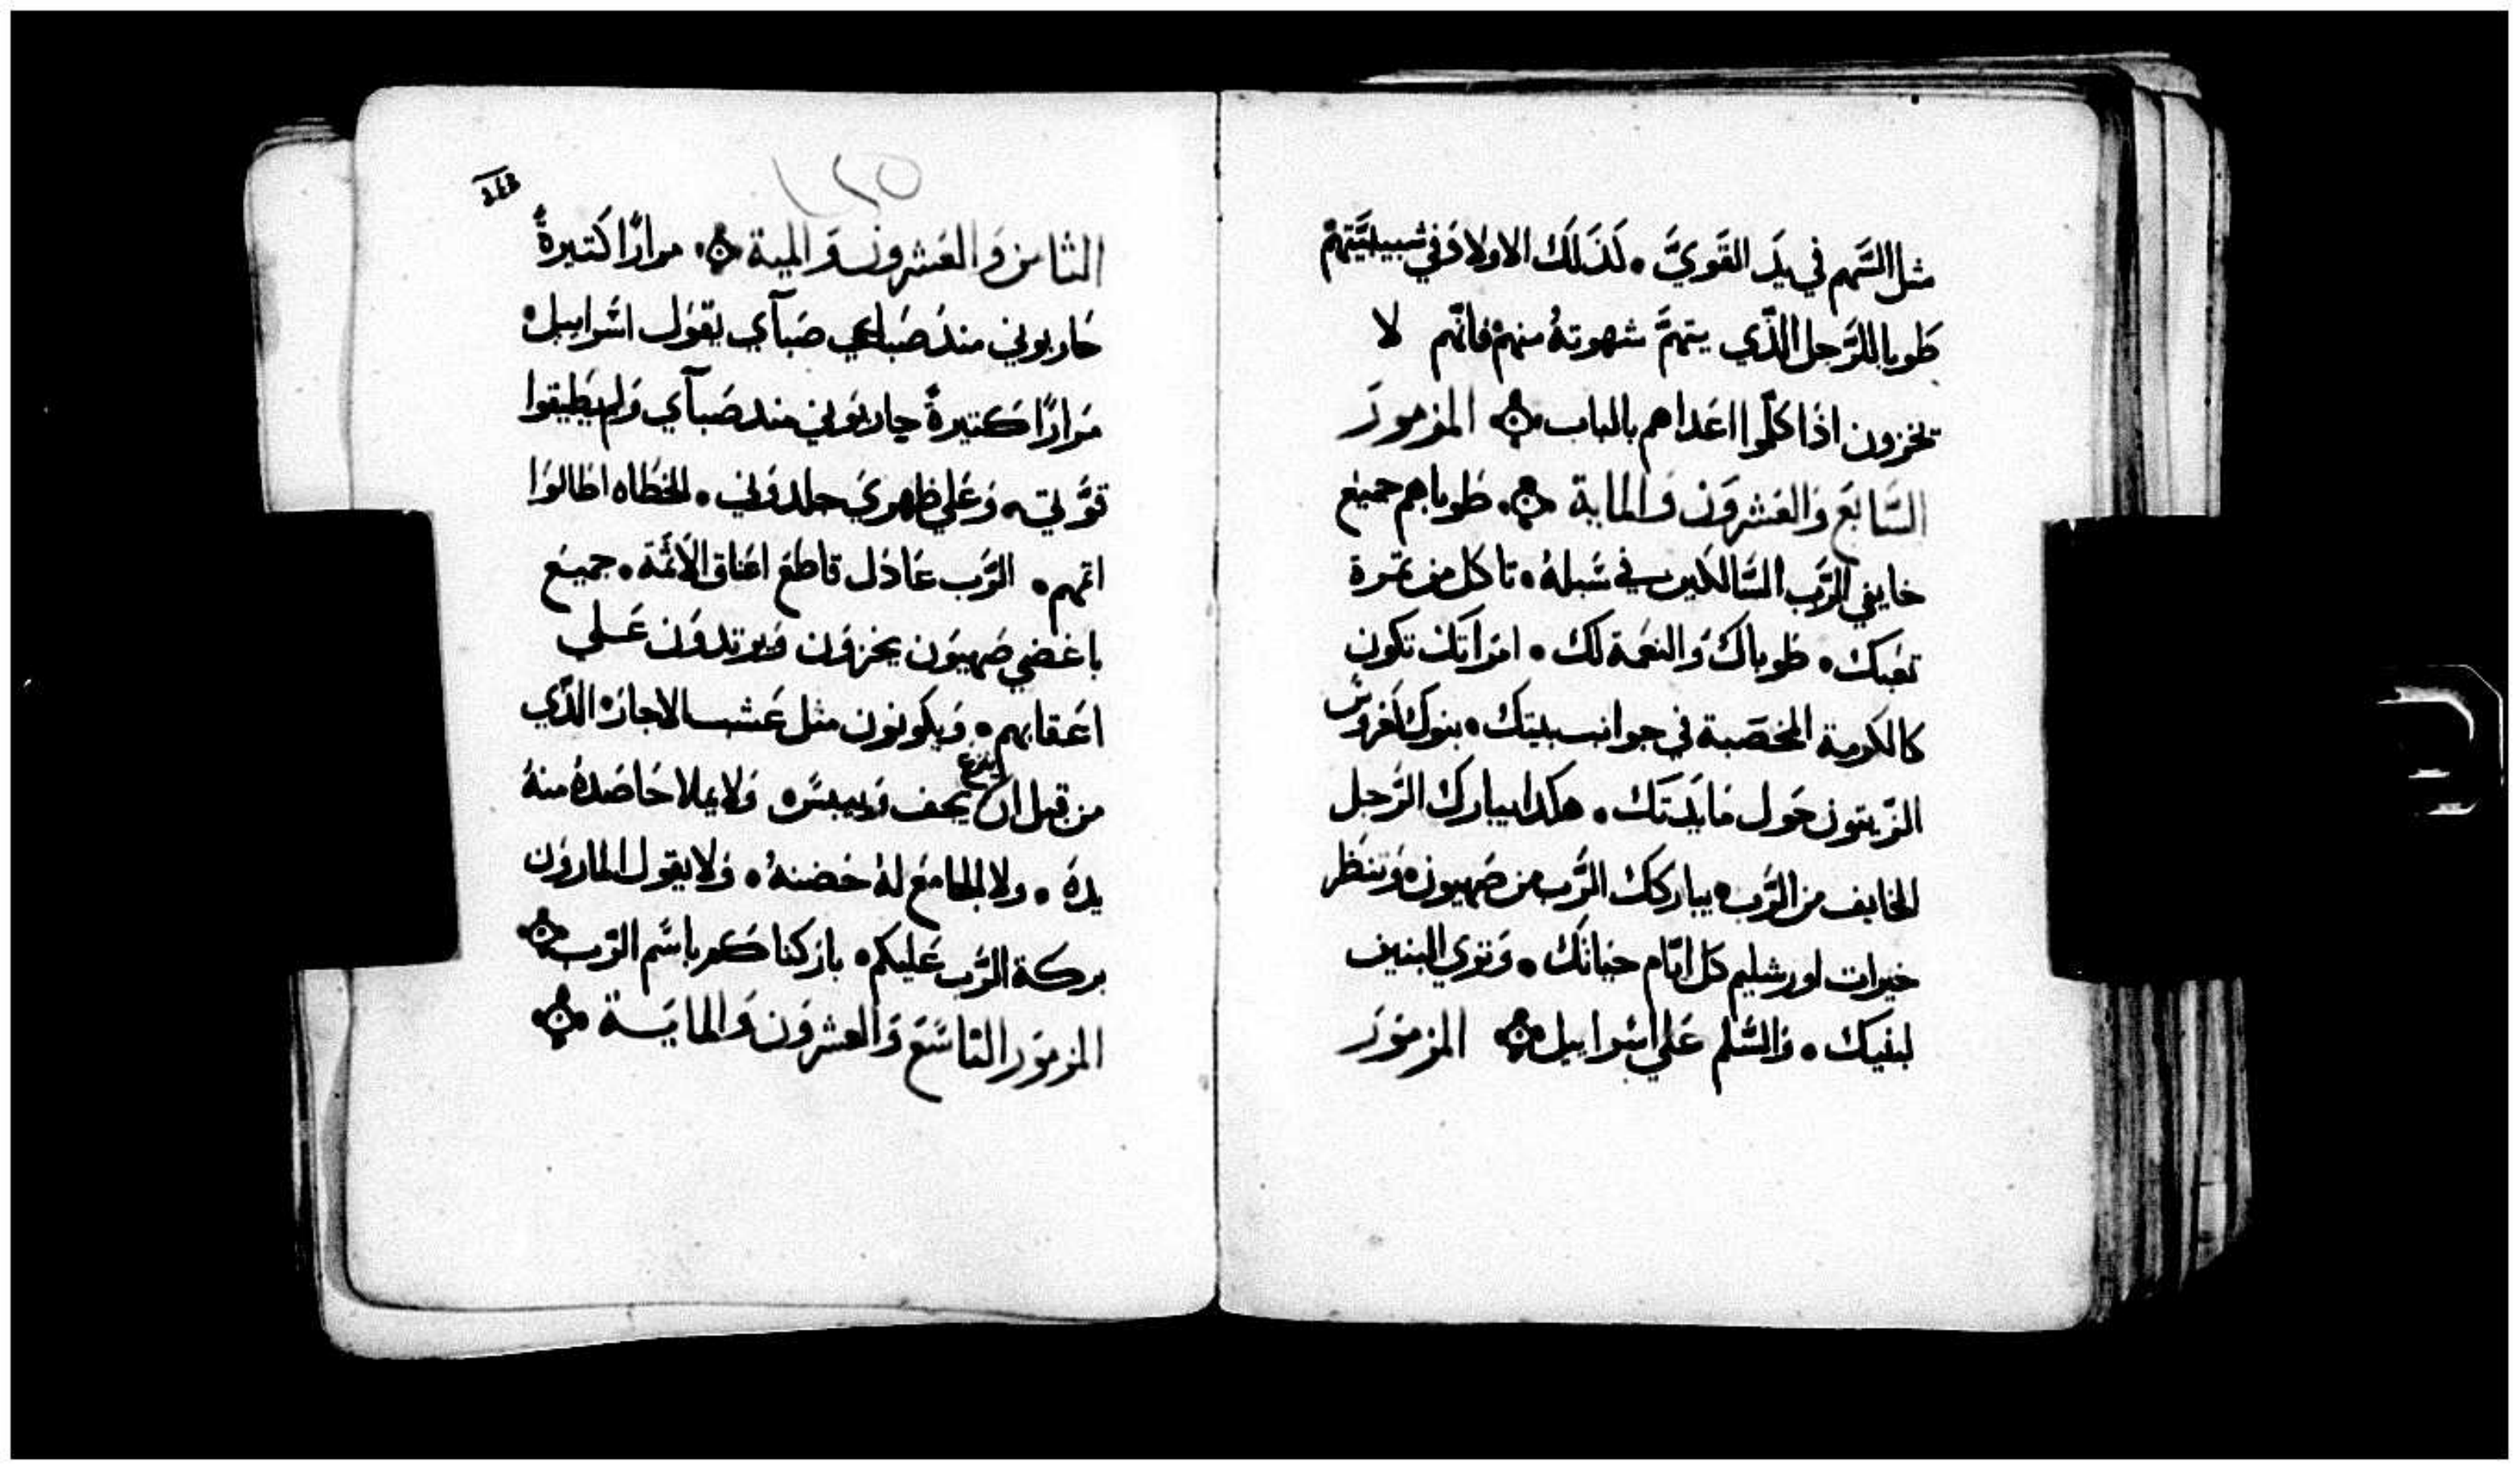 مثل السَّهم في يدَ القَويَّ . لَذَلَك الاولاد في شبيبيَّتهمْ
طَوبا للرَّجل الذّي يتهمَّ شهوتهُ منهمْ فانّهم لا
تخزون اذَا كلّموا اعَداهم بالباب المزمورَ
السَّابعَ وَالعَشرونَ وَالماية . طَوباهم جميعَ
خايفي الرَّب السَّالكين في سَبلهُ . تاكل من تمرة
تعبَك . طَوباك وَالنعَمة لك . امرَاتَك تكون
كالكرمة المخصَبة في جوانب بيتك . بنوك كَغروسْ
الزّيتون حَول مَايَدَتَك . هكدا يبارك الرَّجل
الخايف من الرَّب يباركك الرَّب من صَهيون وَتنظر
خيرات اورشليم كل ايّام حياتَك . وَتري البنين
لبنيك . وَالسَّلم عَلي اسَراييل المزموَرَ
الثامن وَالعَشرون وَالمية مرارًا كتيرةً
حَاربوني مندَ صَباي يقوَل اسَراييل
مَرارًا كتيرةً حاربوَني مند صَبآي وَلم يَطيقوا
قوَّتي . وَعَلي ظهريَ جلدوَني . الخَطاه اطَالوَا
اتمهم . الرَّب عَادَل قاطعَ اعَناق الاَثَمَة . جميعَ
باغضي صَهيَون يخزوَن وَيرتدوَن عَلي
اعَقابهم . وَيكونون مثل عَشب الاجاَر الذّي
من قبل ان ينزع يجف وَييبسَ . وَلا يملا حَاصَدهُ منهُ
يدهَ . ولا الجامعَ لهُ حَضنهُ . وَلا يقول المارَون
بركة الرَّب عَليكم . باركناكم باسَم الرَّب
المزموَر التاسَعَ وَالعشروَن وَالمايَة